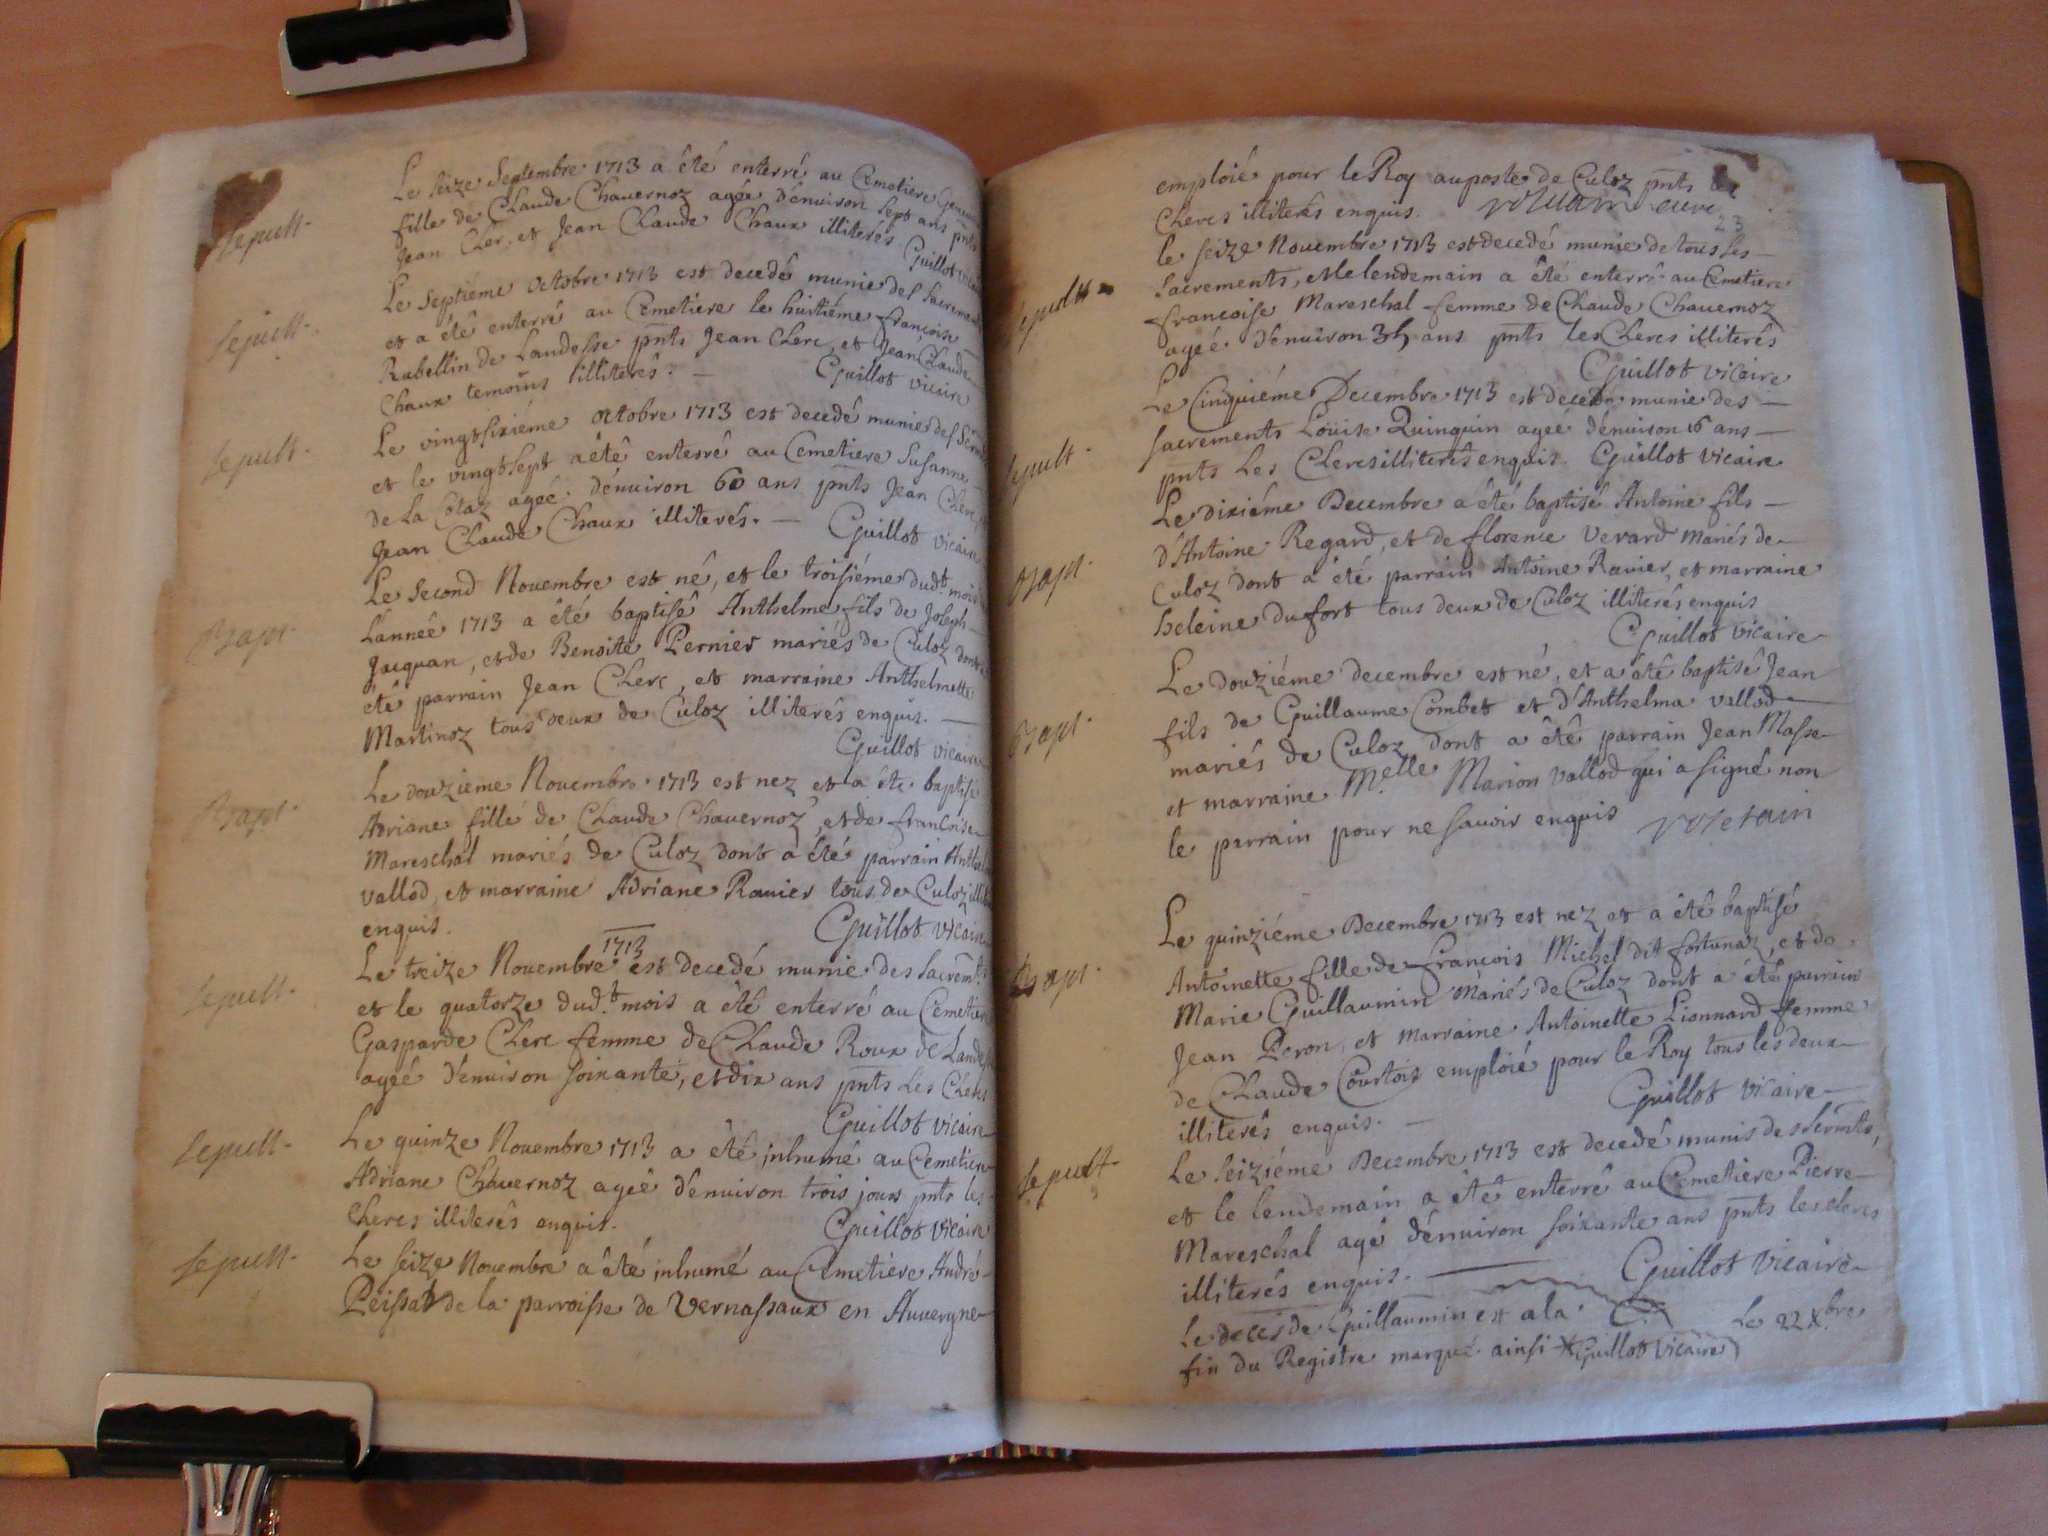 sepult.
Le seize Septembre 1713 a été enterré au Cemetiere
fille de Claude Chauernoz agée d'enuiron sept ans pnts
Jean Cler, et Jean Claude Chaux illiterés Guillot
sepult.
Le septiéme octobre 1713 est decedé munie des
et a été enterré au Cemetiere le huitiéme françoise
Rubellin de Landesse pnts Jean Clerc, et Jean Claude
Chaux temoins illiterés. Guillot vicaire
sepult.
Le vingtsixiéme octobre 1713 est decedé munie des
et le vingtsept a été enterré au Cemetiere Susanne
de la Côtaz ageé d'enuiron 60 ans pnts Jean Clerc
Jean Claude Chaux illiterés. Guillot vicaire
Bapt.
Le second Nouembre est né, et le troisiéme dudt. mois
L'année 1713 a été baptisé Anthelme fils de Joseph
Jacquan, et de Benoite Pernier mariés de Culoz dont
été parrain Jean Clerc, et marraine Anthelmette
Martinoz tous deux de Culoz illiterés enquis.
Guillot vicaire
Bapt.
Le douzieme Nouembre 1713 est nez et a été baptisé
Adriane fille de Claude Chauernoz, et de françoise
Mareschal mariés de Culoz dont a été parrain
vallod, et marraine Adriane Rauier tous de Culoz
enquis. Guillot vicaire
sepult.
1713
Le treize Nouembre est decedé munie des sacremts
et le quatorze dudt. mois a été enterré au Cemetiere
Gasparde Clerc femme de Claude Roux de
ageé d'enuiron soixante, et dix ans pnts les Clercs
Guillot vicaire
sepult.
Le quinze Nouembre 1713 a été inhumé au Cemetiere
Adriane Chauernoz ageé d'enuiron trois jours pnts les
Clercs illiterés enquis. Guillot vicaire
sepult.
Le seize Nouembre a été inhumé au Cemetiere André
de la parroisse de Vernassaux en Auuergne
emploié pour le Roy au poste de Culoz pnts les
Clercs illiterés enquis. curé
23
sepult
le seize Nouembre 1713 est decedé munie de tous les
sacrements, et le lendemain a été enterré au Cemetiere
francoise Mareschal femme de Claude Chauernoz
ageé d'enuiron 35 ans pnts les Clercs illiterés
Guillot vicaire
sepult.
Le Cinquiéme Decembre 1713 est decedée munie des
sacrements Loüise Quinquin ageé d'enuiron 16 ans
pnts les Clercs illiterés enquis. Guillot vicaire
Bapt.
Le dixiéme Decembre a été baptisé Antoine fils
d'Antoine Regard, et de florence Verard mariés de
Culoz dont a été parrain Antoine Rauier, et marraine
heleine dufort tous deux de Culoz illiterés enquis
Guillot vicaire
Bapt.
Le douziéme decembre est né, et a été baptisé Jean
fils de Guillaume Combet et d'Anthelma vallod
mariés de Culoz dont a été parrain Jean Masse
et marraine Melle. Marion vallod qui a signé non
le parrain pour ne sauoir enquis
Bapt.
Le quinziéme Decembre 1713 est nez et a été baptisé
Antoinette fille de françois Michel dit fortunaz, et de
Marie Guillaumin Mariés de Culoz dont a été parrain
Jean Peron, et marraine Antoinette Lionnard femme
de Claude Courtois emploié pour le Roy tous les deux
illiterés enquis. Guillot vicaire
sepult.
Le seiziéme Decembre 1713 est decedé munis des
et le lendemain a été enterré au Cemetiere Pierre
Mareschal agé d'enuiron soixante ans pnts les clercs
illiterés enquis. Guillot vicaire
Le decés de Guillaumin est a la Le 22 Xbre
fin du Registre marqué ainsi Guillot vicaire